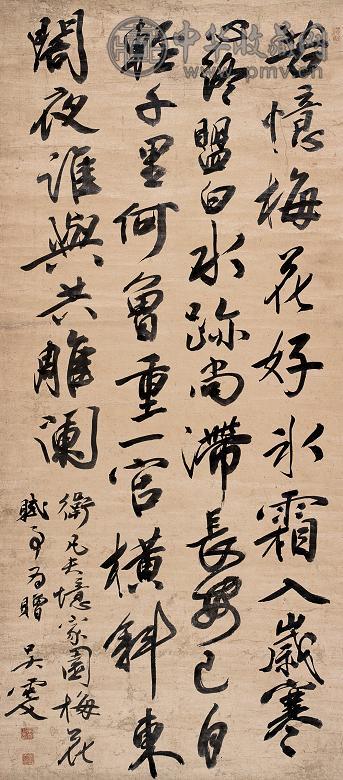 中华收藏网
www.pmv.cn
憶梅花好冰霜入歲寒
心終盟白水跡尚滯長安已自
輕千里何曾重一官橫斜東
閣夜誰與共雕闌
衛凡夫憶家園梅花
賦為贈
吳雯